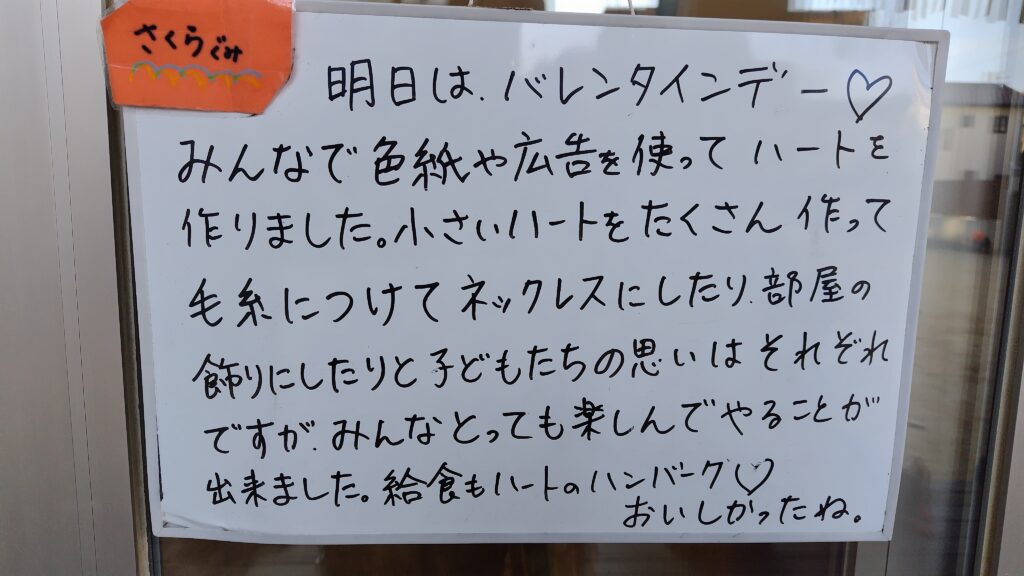 さくらぐみ
明日は、バレンタインデー♡
みんなで色紙や広告を使ってハートを
作りました。小さいハートをたくさん作って
毛糸につけてネックレスにしたり、部屋の
飾りにしたりと子どもたちの思いはそれぞれ
ですが、みんなとっても楽しんでやることが
出来ました。給食もハートのハンバーグ♡
おいしかったね。